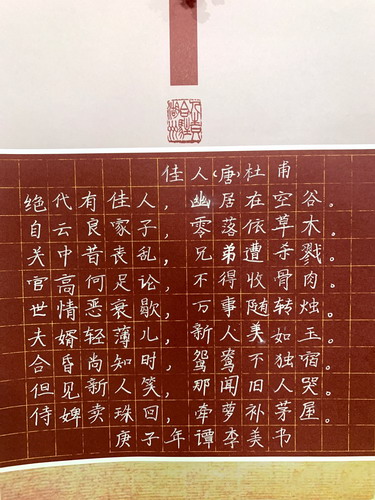 佳人(唐)杜甫
绝代有佳人，幽居在空谷。
自云良家子，零落依草木。
关中昔丧乱，兄弟遭杀戮。
官高何足论，不得收骨肉。
世情恶衰歇，万事随转烛。
夫婿轻薄儿，新人美如玉。
合昏尚知时，鸳鸯不独宿。
但见新人笑，那闻旧人哭。
侍婢卖珠回，牵萝补茅屋。
庚子年谭李美书